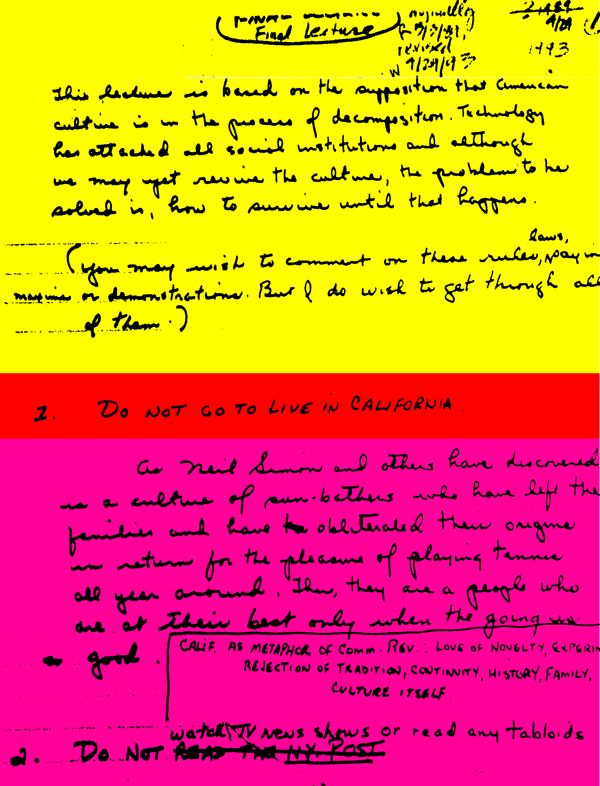 Final Lecture
Originally
5/3/91,
revised
4/29/93
4/29
1993
This lecture is based on the supposition that American
culture is in the process of decomposition. Technology
has attacked all social institutions and although
we may yet revive the culture, the problem to be
solved is, how to survive until that happens.
laws,
(You may wish to comment on these rules, sayin
maxims or demonstrations. But I do wish to get through all
of them.)
1. DO NOT GO TO LIVE IN CALIFORNIA
As Neil Simon and others have discovered
is a culture of sun-bathers who have left the
families and have obliterated their origins
in return for the pleasure of playing tennis
all year around. Thus, they are a people who
are at their best only when the going is
good.
CALIF. AS METAPHOR OF COMM. REV.: LOVE OF NOVELTY, EXPERIM
REJECTION OF TRADITION, CONTINUITY, HISTORY, FAMILY,
CULTURE ITSELF.
watch TV news shows or read any tabloids
2. DO NOT READ THE N.Y. POST